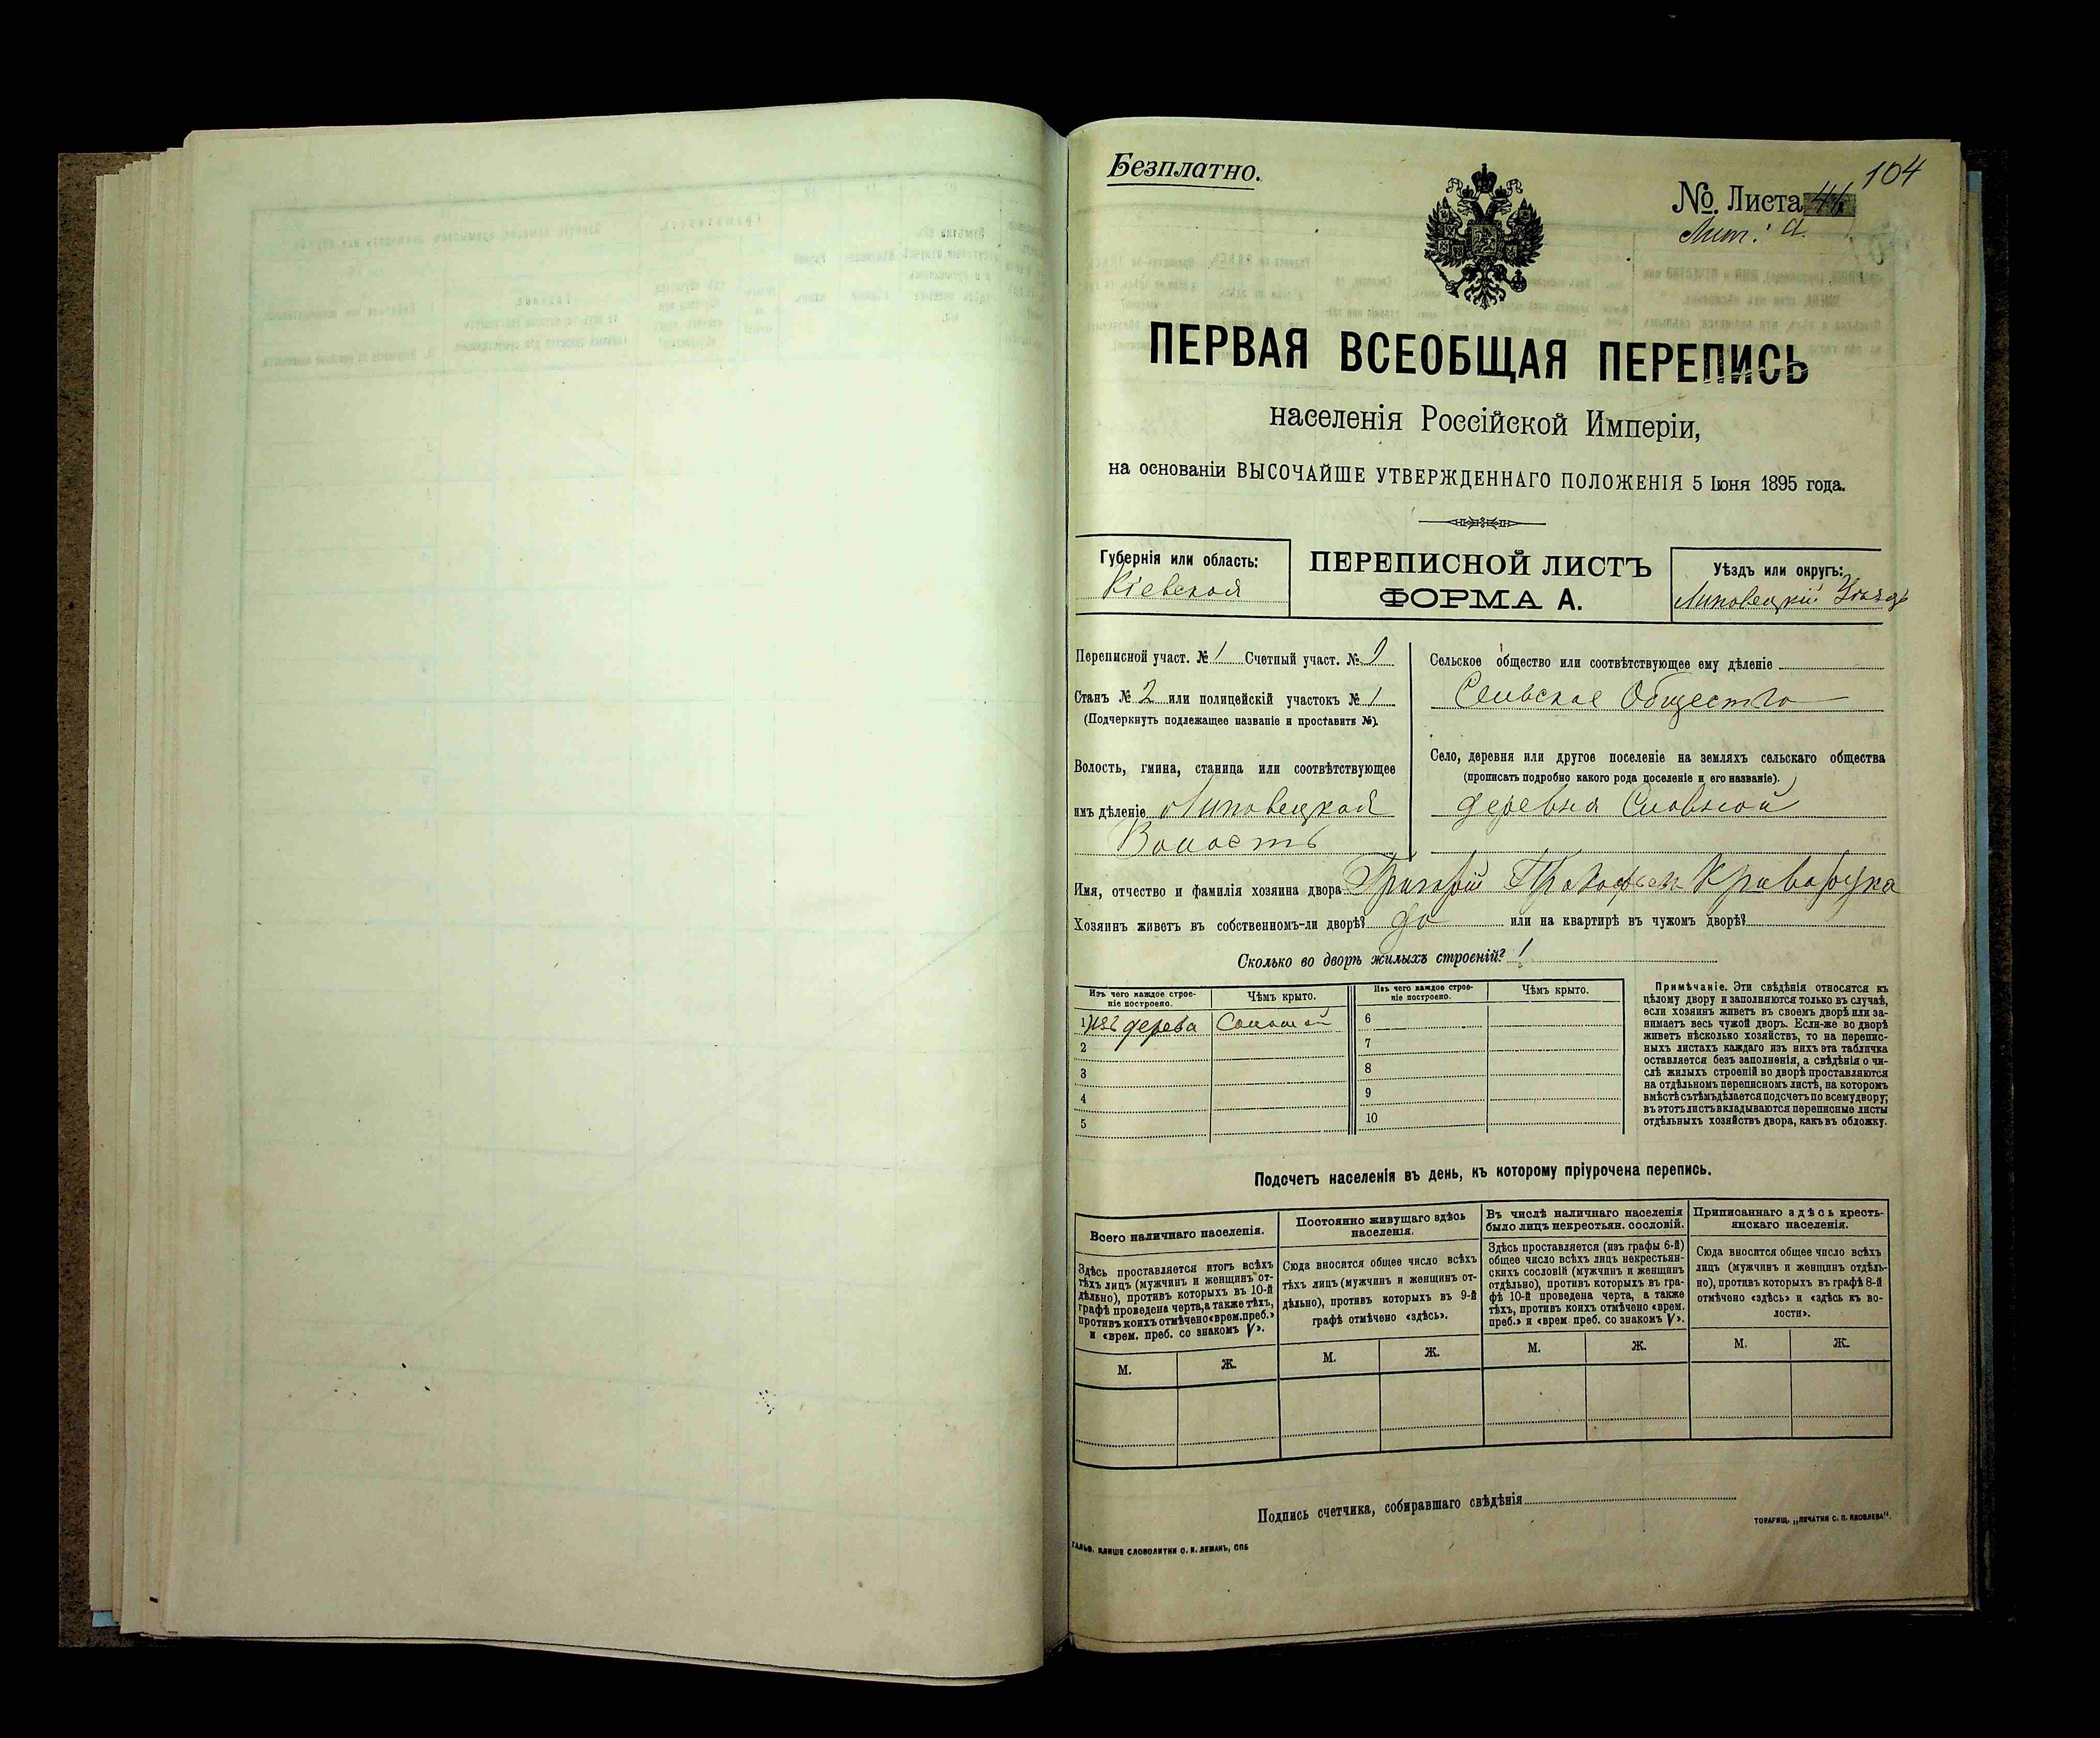 Безплатно.
104
№. Листа 44
Лит. А.
ПЕРВАЯ ВСЕОБЩАЯ ПЕРЕПИСЬ
населенія Россійской Имперіи,
на основаніи ВЫСОЧАЙШЕ УТВЕРЖДЕННАГО ПОЛОЖЕНІЯ 5 Іюня 1895 года.
Губернія или область:
Кіевская
ПЕРЕПИСНОЙ ЛИСТЪ
ФОРМА А.
Уѣздъ или округъ:
Липовецкій Уѣздъ
Переписной участ. № 1 Счетный участ. №
Станъ № 2 или полицейскій участокъ № 1
(Подчеркнуть подлежащее названіе и проставить №).
Волость, гмина, станица или соотвѣтствующее
имъ дѣленіе Липовецкая
Волость
Сельское общество или соотвѣтствующее ему дѣленіе
Сельское Общество
Село, деревня или другое поселеніе на земляхъ сельскаго общества
(прописать подробно какого рода поселеніе и его названіе).
деревня
Имя, отчество и фамилія хозяина двора Григорій
Хозяинъ живетъ въ собственномъ-ли дворѣ? да или на квартирѣ въ чужомъ дворѣ?
Сколько во дворѣ жилыхъ строеній? 1
Изъ чего каждое строе-
ніе построено.
Чѣмъ крыто.
Изъ чего каждое строе-
ніе построено.
Чѣмъ крыто.
1 изъ дерева Соломой 6
2 7
3 8
4 9
5 10
Примѣчаніе. Эти свѣдѣнія относятся къ
цѣлому двору и заполняются только въ случаѣ,
если хозяинъ живетъ въ своемъ дворѣ или за-
нимаетъ весь чужой дворъ. Если-же во дворѣ
живетъ нѣсколько хозяйствъ, то на перепис-
ныхъ листахъ каждаго изъ нихъ эта табличка
оставляется безъ заполненія, а свѣдѣнія о чи-
слѣ жилыхъ строеній во дворѣ проставляются
на отдѣльномъ переписномъ листѣ, на которомъ
вмѣстѣ съ тѣмъ дѣлается подсчетъ по всему двору;
въ этотъ листъ вкладываются переписные листы
отдѣльныхъ хозяйствъ двора, какъ въ обложку.
Подсчетъ населенія въ день, къ которому пріурочена перепись.
Всего наличнаго населенія.
Здѣсь проставляется итогъ всѣхъ
тѣхъ лицъ (мужчинъ и женщинъ от-
дѣльно), противъ которыхъ въ 10-й
графѣ проведена черта, а также тѣхъ,
противъ коихъ отмѣчено «врем. преб.»
и «врем. преб. со знакомъ V».
М. Ж.
Постоянно живущаго здѣсь
населенія.
Сюда вносится общее число всѣхъ
тѣхъ лицъ (мужчинъ и женщинъ от-
дѣльно), противъ которыхъ въ 9-й
графѣ отмѣчено «здѣсь».
М. Ж.
Въ числѣ наличнаго населенія
было лицъ некрестьян. сословій.
Здѣсь проставляется (изъ графы 6-й)
общее число всѣхъ лицъ некрестьян-
скихъ сословій (мужчинъ и женщинъ
отдѣльно), противъ которыхъ въ гра-
фѣ 10-й проведена черта, а также
тѣхъ, противъ коихъ отмѣчено «врем.
преб.» и «врем преб. со знакомъ V».
М. Ж.
Приписаннаго здѣсь кресть-
янскаго населенія.
Сюда вносится общее число всѣхъ
лицъ (мужчинъ и женщинъ отдѣль-
но), противъ которыхъ въ графѣ 8-й
отмѣчено «здѣсь» и «здѣсь къ во-
лости».
М. Ж.
Подпись счетчика, собиравшаго свѣдѣнія
ГАЛЬВ. КЛИШЕ СЛОВОЛИТНИ О. И. ЛЕМАНЪ, СПБ
ТОВАРИЩ. „ПЕЧАТНЯ С. П. ЯКОВЛЕВА".